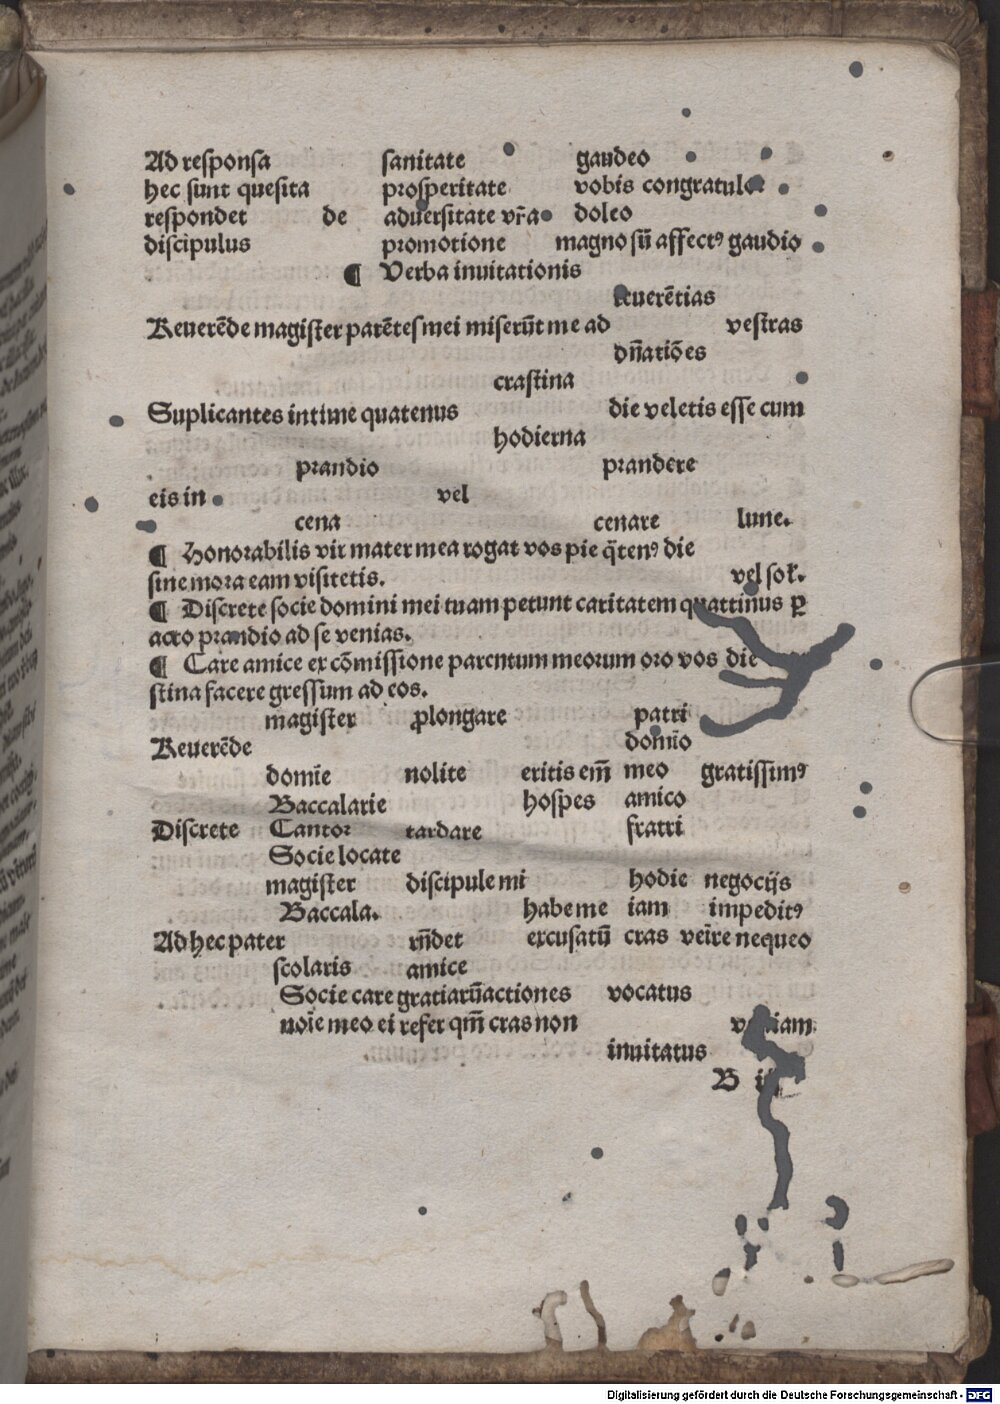 Ad responsa sanitate gaudeo
hec sunt quesita prosperitate vobis
respondet de aduersitate vr̄a doleo
discipulus promotione magno sū affectꝰ gaudio
¶ Verba inuitationis
reuerētias
Reuerēde magister parētes mei miserūt me ad vestras
dn̄atiōes
crastina
Suplicantes intime quatenus die veletis esse cum
hodierna
prandio prandere
eis in vel
cena cenare lune.
¶ Honorabilis vir mater mea rogat vos pie q̄tenꝰ die
sine mora eam visitetis. vel soł.
¶ Discrete socie domini mei tuam petunt caritatem quattinus ꝑ
acto prandio ad se venias.
¶ Care amice ex cōmissione parentum meorum oro vos die
stina facere gressum ad eos.
magister ꝓlongare patri
Reuerēde domīo
domīe nolite eritis em̄ meo gratissimꝰ
Baccalarie hospes amico
Discrete Cantor tardare fratri
Socie locate
magister discipule mi hodie negocijs
Baccala. habe me iam impeditꝰ
Ad hec pater rn̄det excusatū cras veīre nequeo
scolaris amice
Socie care gratiarūactiones vocatus
noīe meo ei refer qm̄ cras non
inuitatus
B
Digitalisierung gefördert durch die Deutsche Forschungsgemeinschaft - DFG